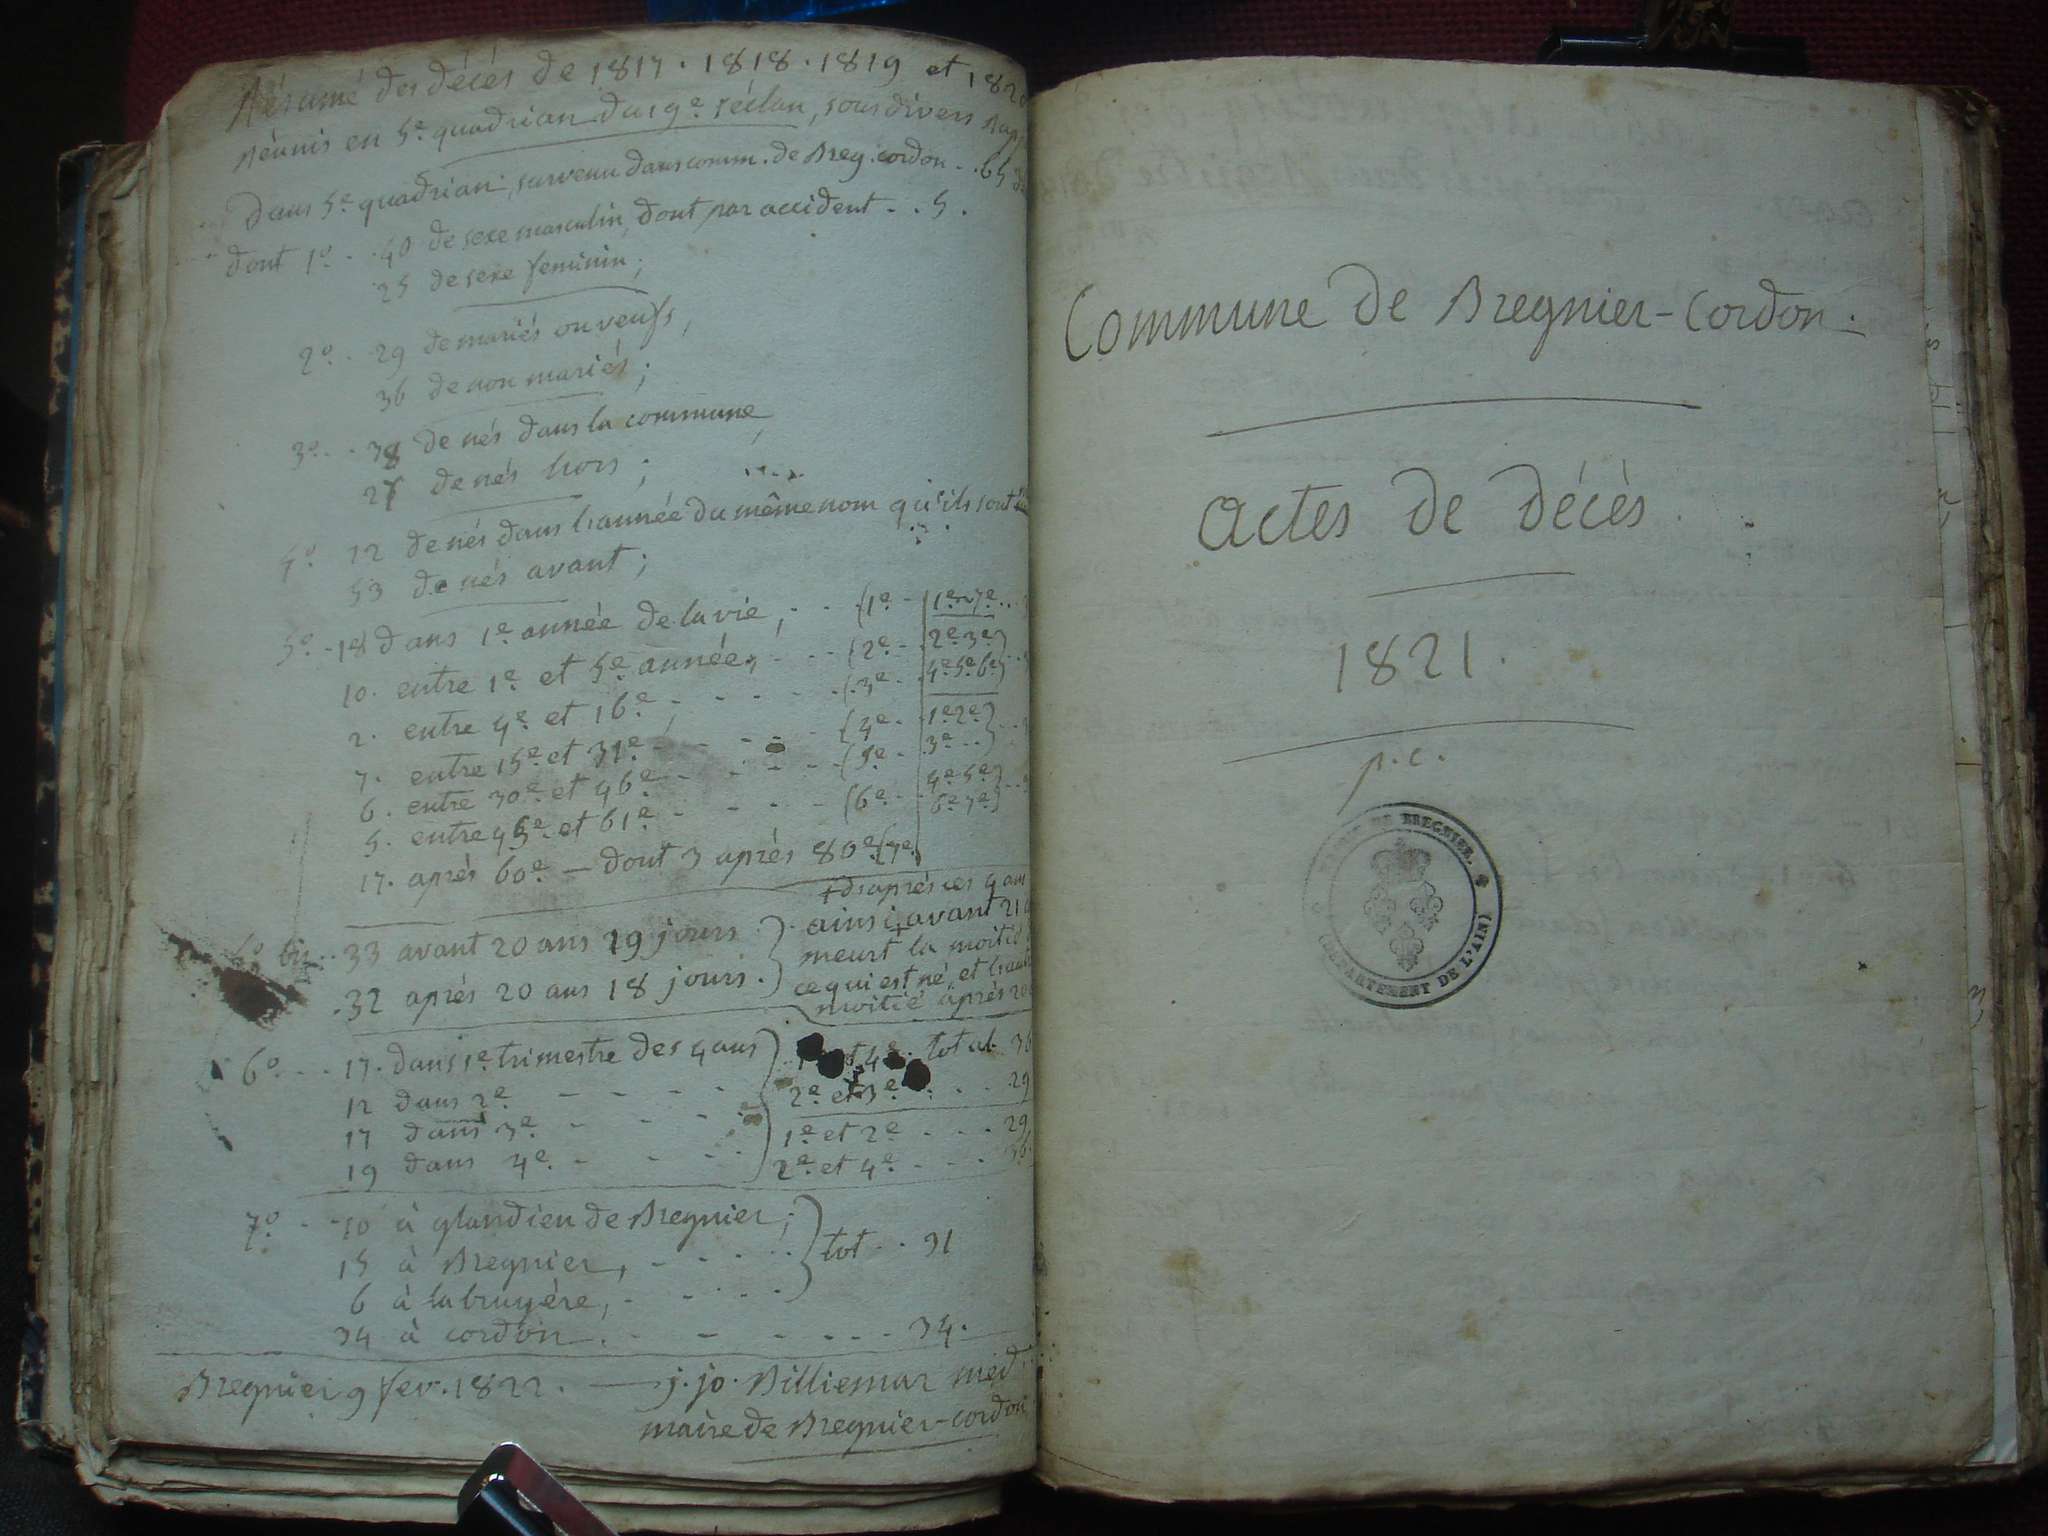 Résumé des décès de 1817 . 1818 . 1819 et 1820
réunis en 5e. quadrian du 19e. séclan, sous divers rap
Dans 5e. quadrian, survenu dans comm. de Breg. cordon - . 65
dont 1o. - . 40 de sexe masculin, dont par accident . . 5 .
25 de sexe feminin ;
2o. . 29 de mariés ou veufs,
36 de non mariés ;
3o. . . 38 de nés dans la commune,
27 de nés hors ;
4o. 12 de nés dans l'année du même nom qu'ils sont
53 de nés avant ;
5o. - 18 dans 1e. année de la vie, - - (1e. -
10. entre 1e. et 5e. année, - - - (2e. - 2e. 3e.
2. entre 4e. et 16e., - - - - (3e. - 4e. 5e. 6e.
7. entre 15e. et 31e. - - - - (4e. - 1e. 2e.
6. entre 30e. et 46e. - - - - (5e. - 3e. - .
5. entre 45e. et 61e. - - - - (6e. - 4e. 5e.
6e. 7e.
17. après 60e. — dont 3 après 80e. (7e.
d'après ces 4 ans
6o. bis . . 33 avant 20 ans 19 jours . } ainsi, avant 21
meurt la moitié
. 32 après 20 ans 18 jours . } ce qui est né, et l'autre
moitié après 20
6o. - - . 17. dans 1e. trimestre des 4 ans } et 4e. . total. 36
12 dans 2e. - - - - 2e. et 3e. . . . 29
17 dans 3e. - - - 1e. et 2e. - - . 29
19 dans 4e. - - - . . 2e. et 4e. - - - 36.
7o. - - 10 à glandieu de Bregnier ;
15 à Bregnier, - - - . . } tot . . 31
6 à la bruyère, - - - . .
34 à cordon . - - - . - . - 34 .
Bregnier 9 fev. 1822 . — j. jo. Billiemaz med
maire de Bregnier-cordon
Commune de Bregnier-Cordon .
Actes de décès
1821 .
p. c.
MAIRIE DE BREGNIER.
(DEPARTEMENT DE L'AIN)